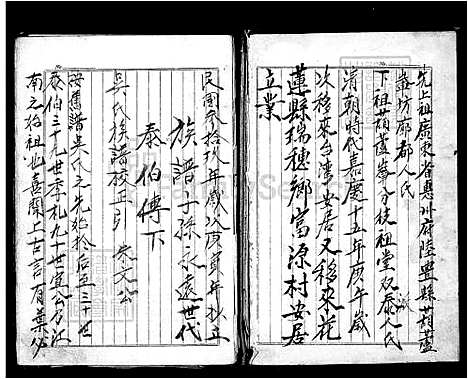 先上祖廣東省惠州府陸豊縣葫蘆
峯坊廓都人氏
下祖葫蘆峯分枝祖堂 双泰人氏
清朝時代嘉慶十五年庚午歲
次移來台湾安居又移來花
蓮縣瑞穗鄉富源村安居
立業
民國叁拾玖年歲次庚寅年抄立
族譜子孫永遠世代
泰伯傳下
吳氏族譜校正引 朱文公
按舊譜吳氏之先始於后稷三十世
泰伯三十九世季札九十世宣公乃江
南之始祖也喜聞上古言有葉必